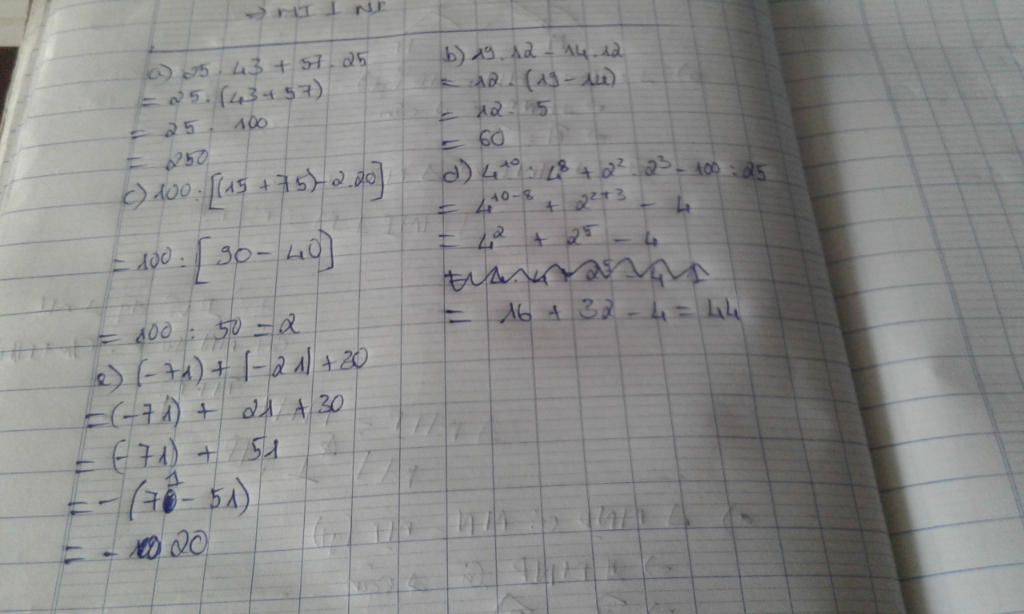 a) 25 . 43 + 57 . 25
= 25 . (43 + 57)
= 25 . 100
= 250
b) 19 . 12 - 14 . 12
= 12 . (19 - 14)
= 12 . 5
= 60
c) 100 : [(15 + 75) - 2.20]
= 100 : [90 - 40]
= 100 : 50 = 2
d) 4^10 : 4^8 + 2^2 . 2^3 - 100 : 25
= 4^10-8 + 2^2+3 - 4
= 4^2 + 2^5 - 4
= 16 + 32 - 4 = 44
e) (-71) + |-21| + 30
= (-71) + 21 + 30
= (-71) + 51
= - (71 - 51)
= - 20